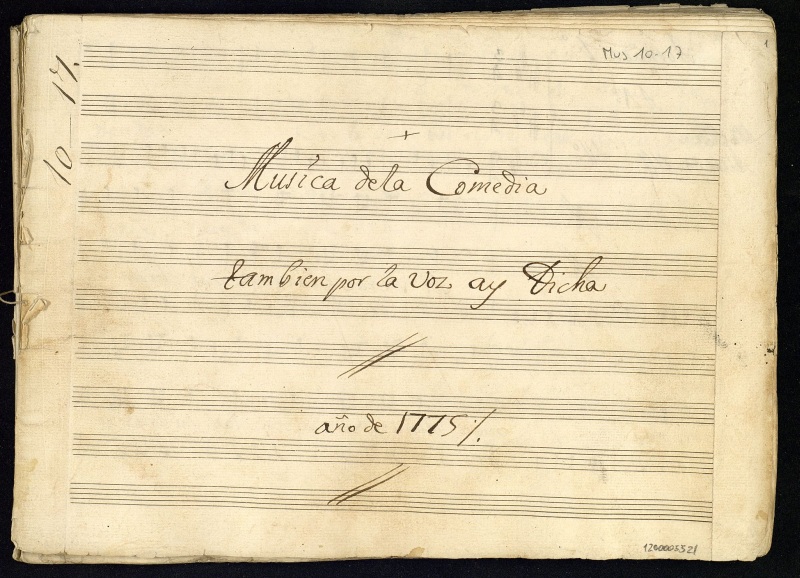 Mus 10-17
1
10-17.
+
Musica dela Comedia
tambien por la voz ay Dicha
año de 1775%.
1200005521